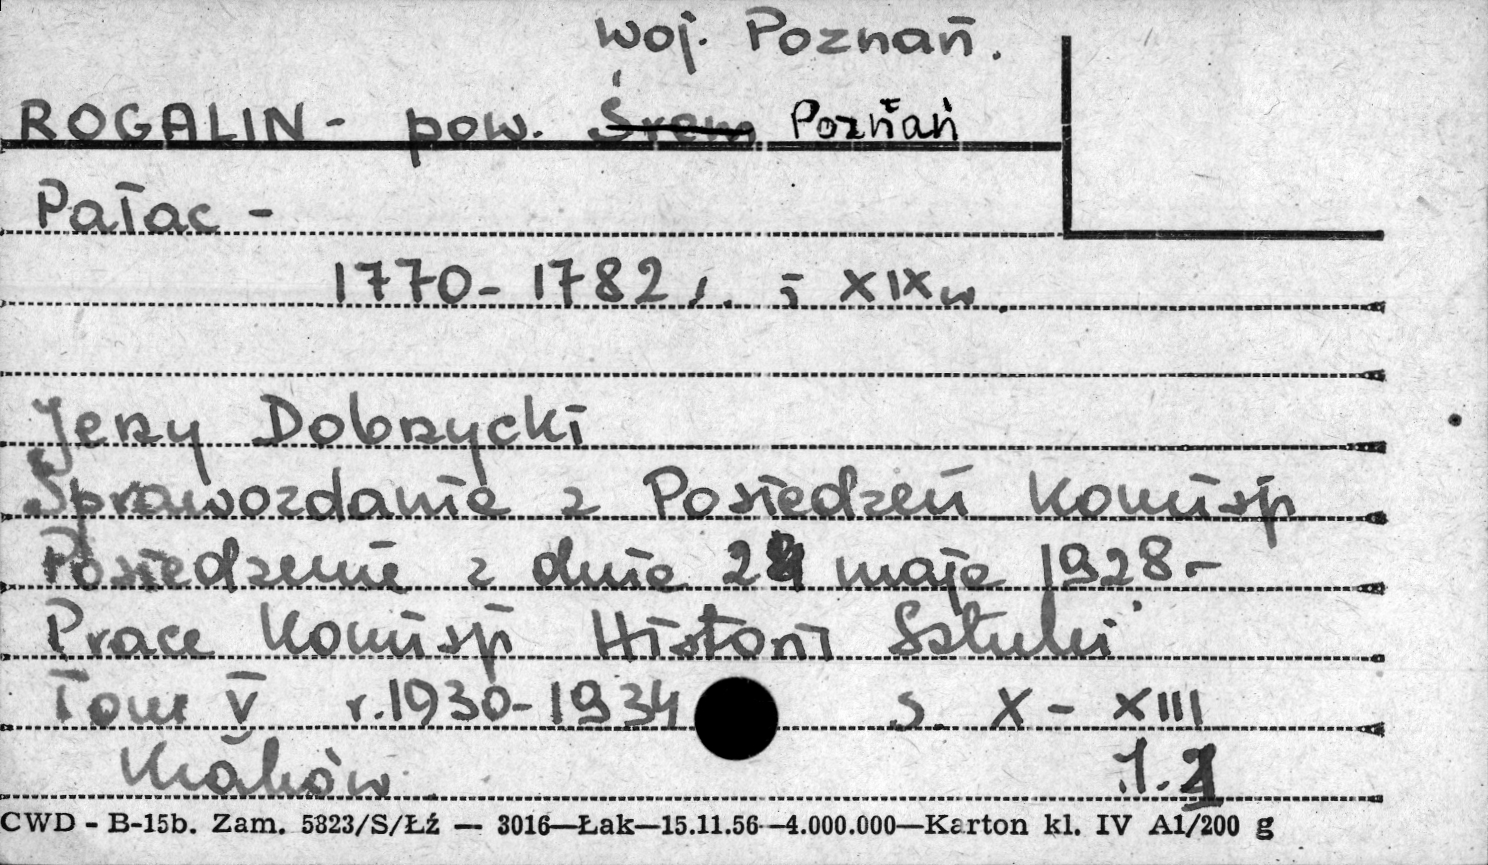 woj. Poznań.
ROGALIN - pow. Śrem Poznań
Pałac -
1770-1782 r. i XIX w.
Jerzy Dobrzycki
Sprawozdanie z Posiedzeń Komisji
Posiedzenie z dnia maja 1928-
Prace Komisji Historii Sztuki
Tom V r. 1930-1934 s. X - XIII
Kraków 1.
CWD - B-15b. Zam. 5823/S/Łź — 3016—Łak—15.11.56—4.000.000—Karton kl. IV A1/200 g